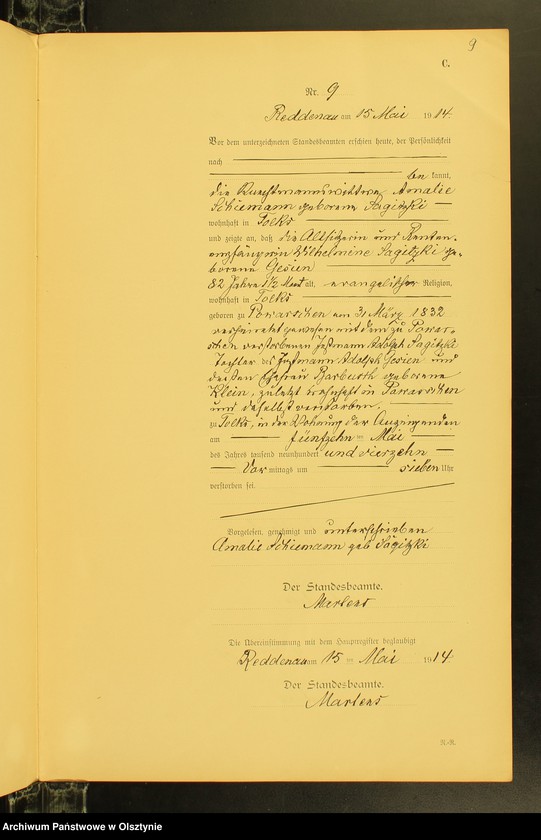 9
C.
Nr. 9
Reddenau am 15 Mai 1914.
Vor dem unterzeichneten Standesbeamten erschien heute, der Persönlichkeit
nach
be kannt,
die Amalie
Schiemann geborene Sagitzki
wohnhaft in Tolks
und zeigte an, daß die Altsitzerin und Renten-
empfängerin Wilhelmine Sagitzki ge-
borene Gesien
82 Jahre 1½ Mont alt, evangelischer Religion,
wohnhaft in Tolks
geboren zu Powarschen am 31 März 1832
verheiratet gewesen mit dem zu Powar-
schen verstorbenen Instmann Adolph Sagitzki
Tochter des Instmann Adolph Gesien und
dessen Ehefrau geborene
Klein, zuletzt wohnhaft in Powarschen
und daselbst verstorben.
zu Tolks, in der Wohnung der Anzeigenden
am fünfzehn ten Mai
des Jahres tausend neunhundert und vierzehn
Vor mittags um sieben Uhr
verstorben sei.
Vorgelesen, genehmigt und unterschrieben
Amalie Schiemann geb Sagitzki
Der Standesbeamte.
Martens
Die Übereinstimmung mit dem Hauptregister beglaubigt
Reddenau am 15 ten Mai 1914.
Der Standesbeamte.
Martens
Archiwum Państwowe w Olsztynie